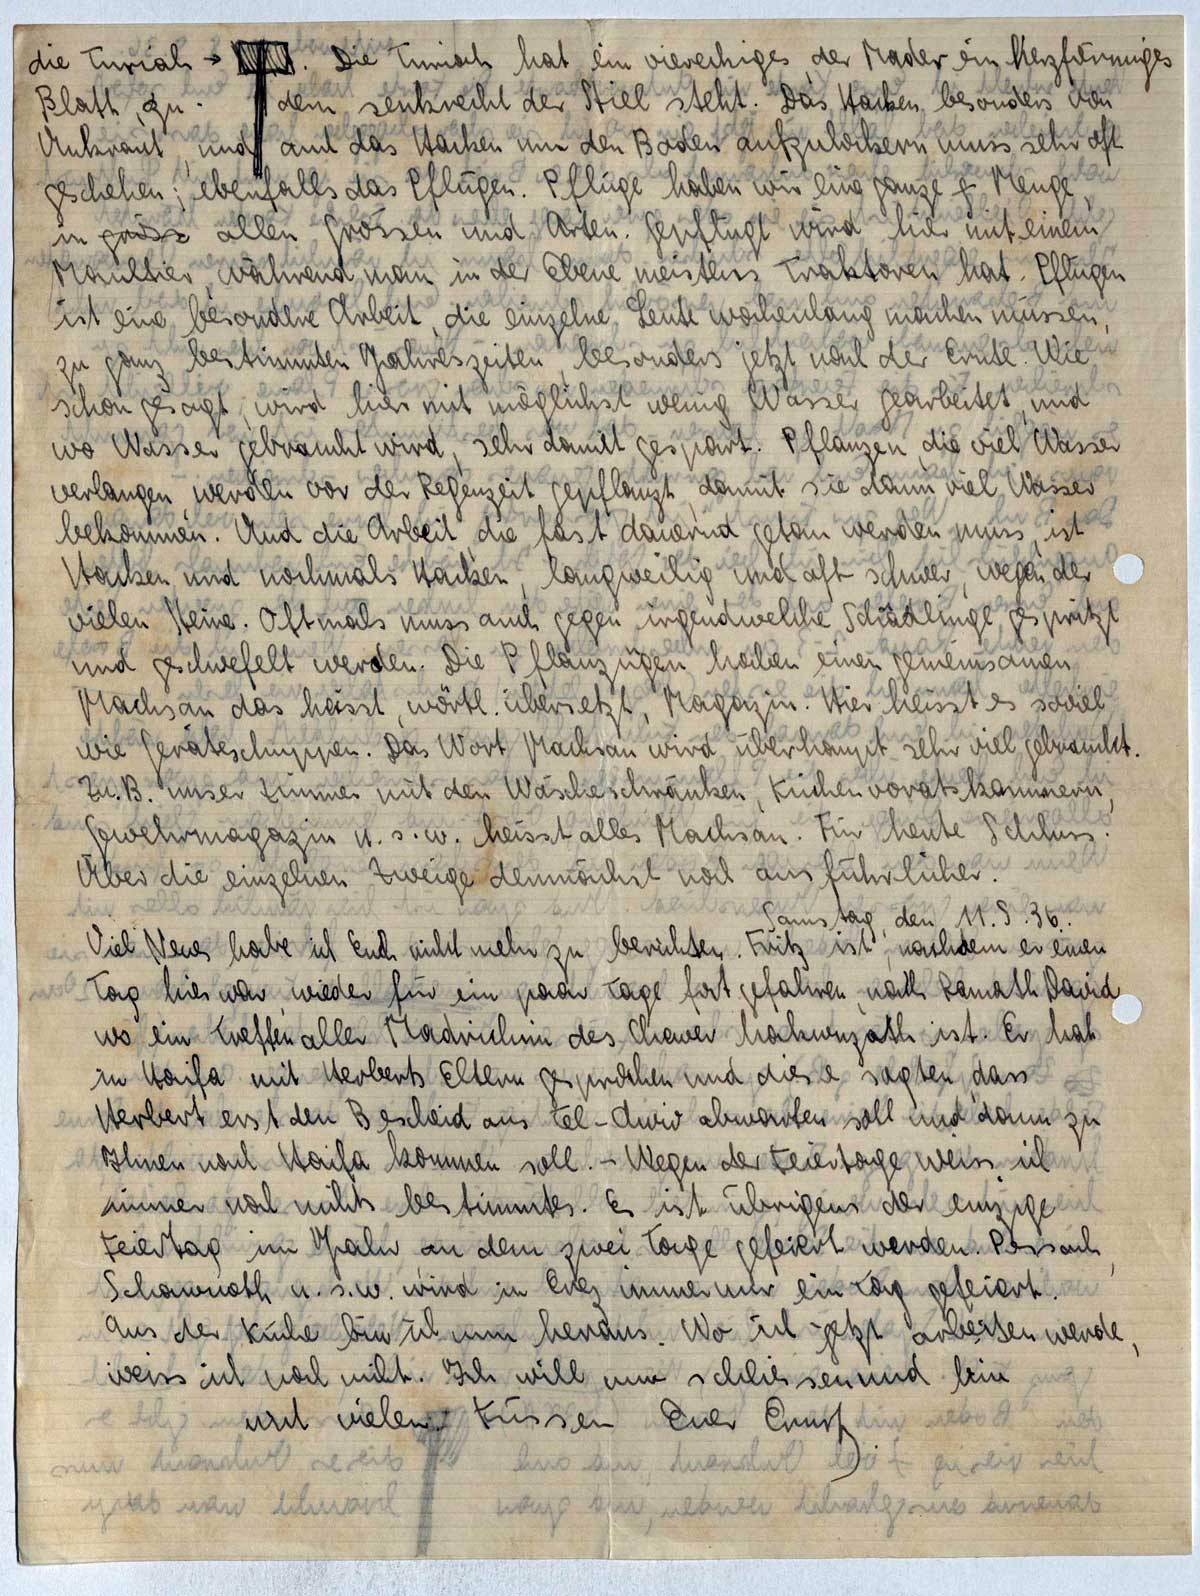 die Turiah → . Die Turiah hat ein viereckiges, der Mader ein Herzförmiges
Blatt, zu dem senkrecht der Stiel steht. Das Hacken, besonders von
Unkraut, und auch das Hacken um den Boden aufzulockern muss sehr oft
geschehen; ebenfalls das Pflügen. Pflüge haben wir eine ganze Menge,
in allen Grössen und Arten. Gepflügt wird hier mit einem
Maultier, während man in der Ebene meistens Traktoren hat. Pflügen
ist eine besondere Arbeit, die einzelne Leute wochenlang machen müssen,
zu ganz bestimmten Jahreszeiten, besonders jetzt nach der Ernte. Wie
schon gesagt, wird hier mit möglichst wenig Wasser gearbeitet, und
wo Wasser gebraucht wird, sehr damit gespart. Pflanzen, die viel Wasser
verlangen, werden vor der Regenzeit gepflanzt, damit sie dann viel Wasser
bekommen. Und die Arbeit, die fast dauernd getan werden muss, ist
Hacken und nochmals Hacken, langweilig und oft schwer, wegen der
vielen Steine. Oftmals muss auch gegen irgendwelche Schädlinge gespritzt
und geschwefelt werden. Die Pflanzugen haben einen gemeinsamen
Machsan das heisst, wörtl. übersetzt, Magazin. Hier heisst es soviel
wie Geräteschuppen. Das Wort Machsan wird überhaupt sehr viel gebraucht.
Zu.B. unser Zimmer mit den Wäscheschränken, Küchenvoratskammern,
Gewehrmagazin u. s. w. heisst alles Machsan. Für heute Schluss.
Über die einzelnen Zweige demnächst noch ausführlicher.
Samstag, den 11.9.36.
Viel Neues habe ich Euch nicht mehr zu berichten. Fritz ist, nachdem er einen
Tag hier war, wieder für ein paar Tage fort gefahren, nach Ramath David
wo ein Treffen aller Madrichim des Chewer hakwuzoth ist. Er hat
in Haifa mit Herberts Eltern gesprochen und diese sagten, dass
Herbert erst den Bescheid aus Tel-Awiv abwarten soll und dann zu
Ihnen nach Haifa kommen soll. – Wegen der Feiertage weiss ich
immer noch nichts bestimmtes. Es ist übrigens der einzige
Feiertag im Jahr an dem zwei Tage gefeiert werden. Pessach,
Schawuoth u. s. w. wird in Erez immer nur ein Tag gefeiert.
Aus der Küche bin ich nun heraus. Wo ich jetzt arbeiten werde,
weiss ich noch nicht. Ich will nun schliessen und bin
mit vielen Küssen Euer Ernst.